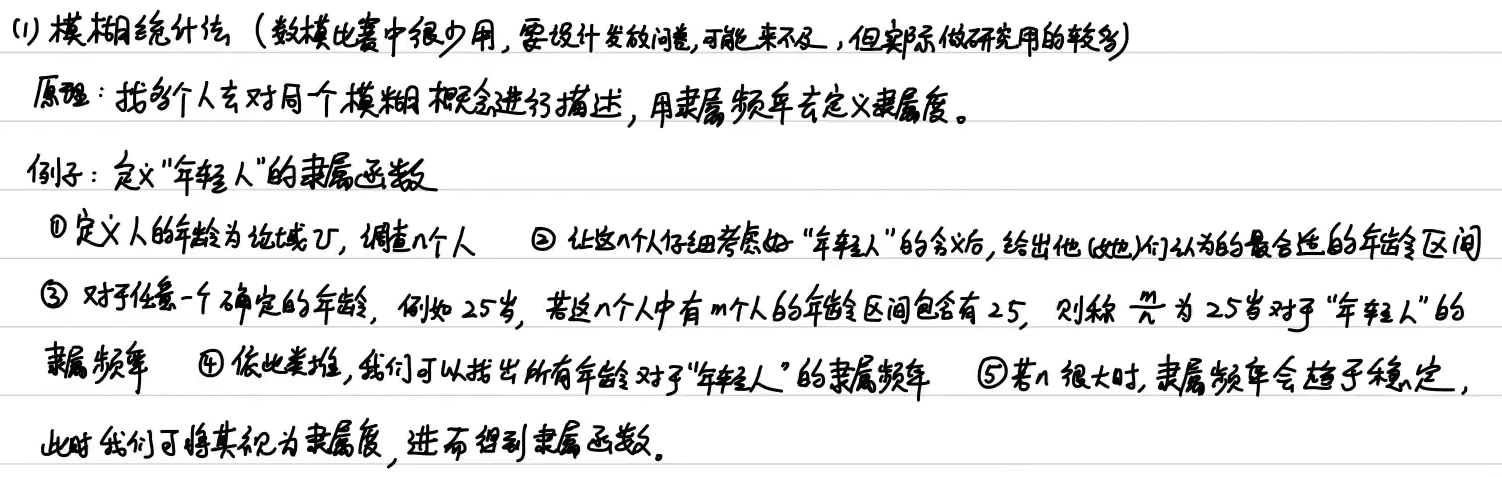 (1) 模糊统计法 (数模比赛中很少用, 要设计发放问卷, 可能来不及, 但实际做研究用的较多)
原理: 找多个人去对同一个模糊概念进行描述, 用隶属频率去定义隶属度。
例子: 定义"年轻人"的隶属函数
① 定义人的年龄为论域U, 调查n个人 ② 让这n个人仔细考虑好"年轻人"的含义后, 给出他(她)们认为的最合适的年龄区间
③ 对于任意一个确定的年龄, 例如25岁, 若这n个人中有m个人的年龄区间包含有25, 则称 m/n 为25岁对于"年轻人"的
隶属频率 ④ 依此类推, 我们可以找出所有年龄对于"年轻人"的隶属频率 ⑤若n很大时, 隶属频率会趋于稳定,
此时我们可将其视为隶属度, 进而得到隶属函数。